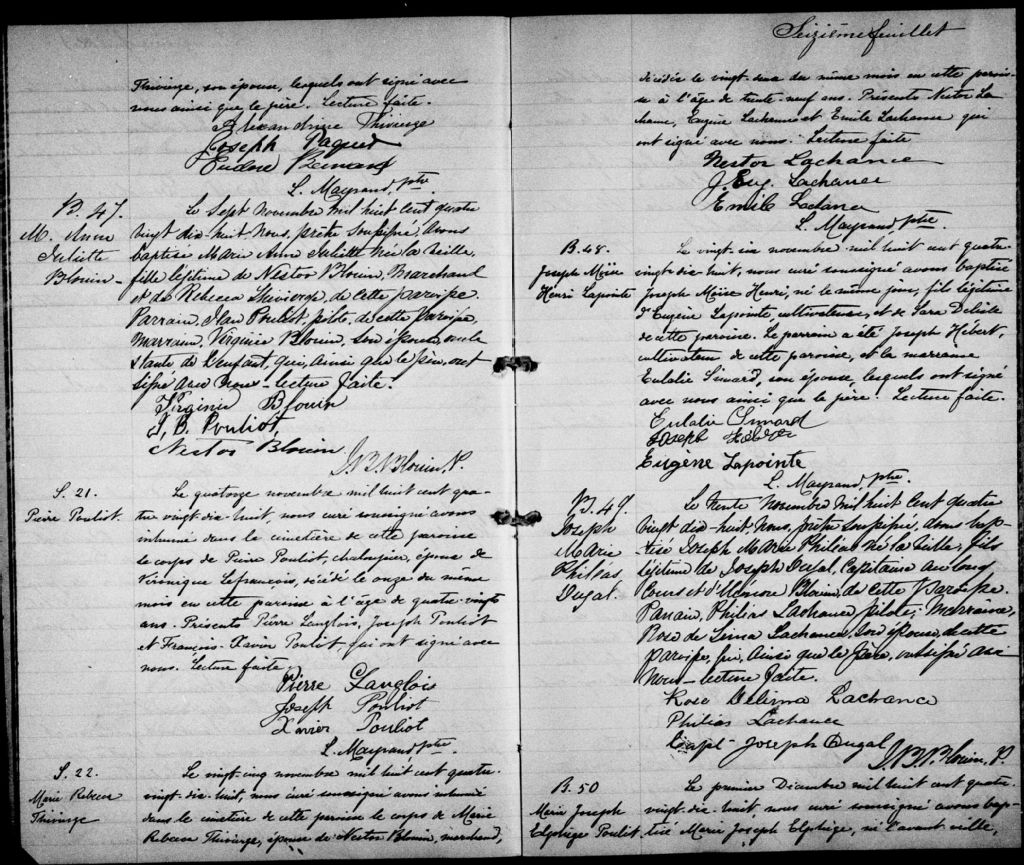 Thivierge, son épouse, lesquels ont signé avec
nous ainsi que le père. Lecture faite.
Alexandrine Thivierge
Joseph Paquet
L. Mayrand, ptre.
B. 47.
M. Anne
Juliette
Blouin
Le Sept Novembre mil huit cent quatre
vingt dix-huit, Nous, prêtre Soussigné, avons
baptisé Marie Anne Juliette Née la veille,
fille légitime de Nestor Blouin, Marchand
et de Rebecca Thivierge, de cette paroisse.
Parrain, Jean Pouliot, pilote, de cette Paroisse,
Marraine, Virginie Blouin, Son épouse, oncle
et tante de l'enfant, qui, ainsi que le père, ont
signé avec Nous - lecture faite.
Virginie Blouin
J. B. Pouliot
Nestor Blouin
Blouin, P.
S. 21.
Pierre Pouliot.
Le quatorze novembre mil huit cent qua-
tre vingt-dix-huit, nous curé soussigné avons
inhumé dans le cimetière de cette paroisse
le corps de Pierre Pouliot, époux de
Véronique Lefrançois, décédé le onze du même
mois en cette paroisse à l'âge de quatre-vingts
ans. Présents Pierre Langlois, Joseph Pouliot
et François-Xavier Pouliot, qui ont signé avec
nous. Lecture faite
Pierre Langlois
Joseph Pouliot
Xavier Pouliot
L. Mayrand, ptre.
S. 22.
Marie Rebecca
Thivierge
Le vingt-cinq novembre mil huit cent quatre-
vingt-dix-huit, nous curé soussigné avons inhumé
dans le cimetière de cette paroisse le corps de Marie
Rebecca Thivierge, épouse de Nestor Blouin, marchand,
Seizième feuillet
décédée le vingt- du même mois en cette parois-
se à l'âge de trente-neuf ans. Présents Nestor La
chance, Eugène Lachance et Emile Lachance qui
ont signé avec nous. Lecture faite
Nestor Lachance
J. Eug. Lachance
Emile Lachance
L. Mayrand, ptre
B. 48.
Joseph Moïse
Henri Lapointe
Le vingt- novembre mil huit cent quatre-
vingt-dix-huit, nous curé soussigné avons baptisé
Joseph Moïse Henri, né le même jour, fils légitime
d'Eugène Lapointe, cultivateur, et de Sara Delisle
de cette paroisse. Le parrain a été Joseph Hébert,
cultivateur de cette paroisse, et la marraine
Eulalie Simard, son épouse, lesquels ont signé
avec nous ainsi que le père. Lecture faite.
Eulalie Simard
Joseph Hébert
Eugène Lapointe
L. Mayrand, ptre.
B. 49.
Joseph
Marie
Philéas
Dugal.
Le trente Novembre mil huit Cent quatre
vingt dix-huit, Nous, prêtre Soussigné, avons bap-
tisé Joseph Marie Philéas né la veille, fils
légitime de Joseph Dugal, Capitaine au long
Cours et d'Honore Blouin, de cette Paroisse.
Parrain, Philéas Lachance pilote; Marraine,
Rose de Lima Lachance, Son épouse, de cette
paroisse, qui, ainsi que le Père, ont signé avec
Nous - lecture faite.
Rose Delima Lachance
Philias Lachance
Capt- Joseph Dugal
Blouin, P.
B. 50
Marie Joseph
Elphège Pouliot
Le premier Décembre mil huit cent quatre-
vingt-dix-huit, nous curé soussigné avons bap-
tisé Marie Joseph Elphège, né l'avant veille,